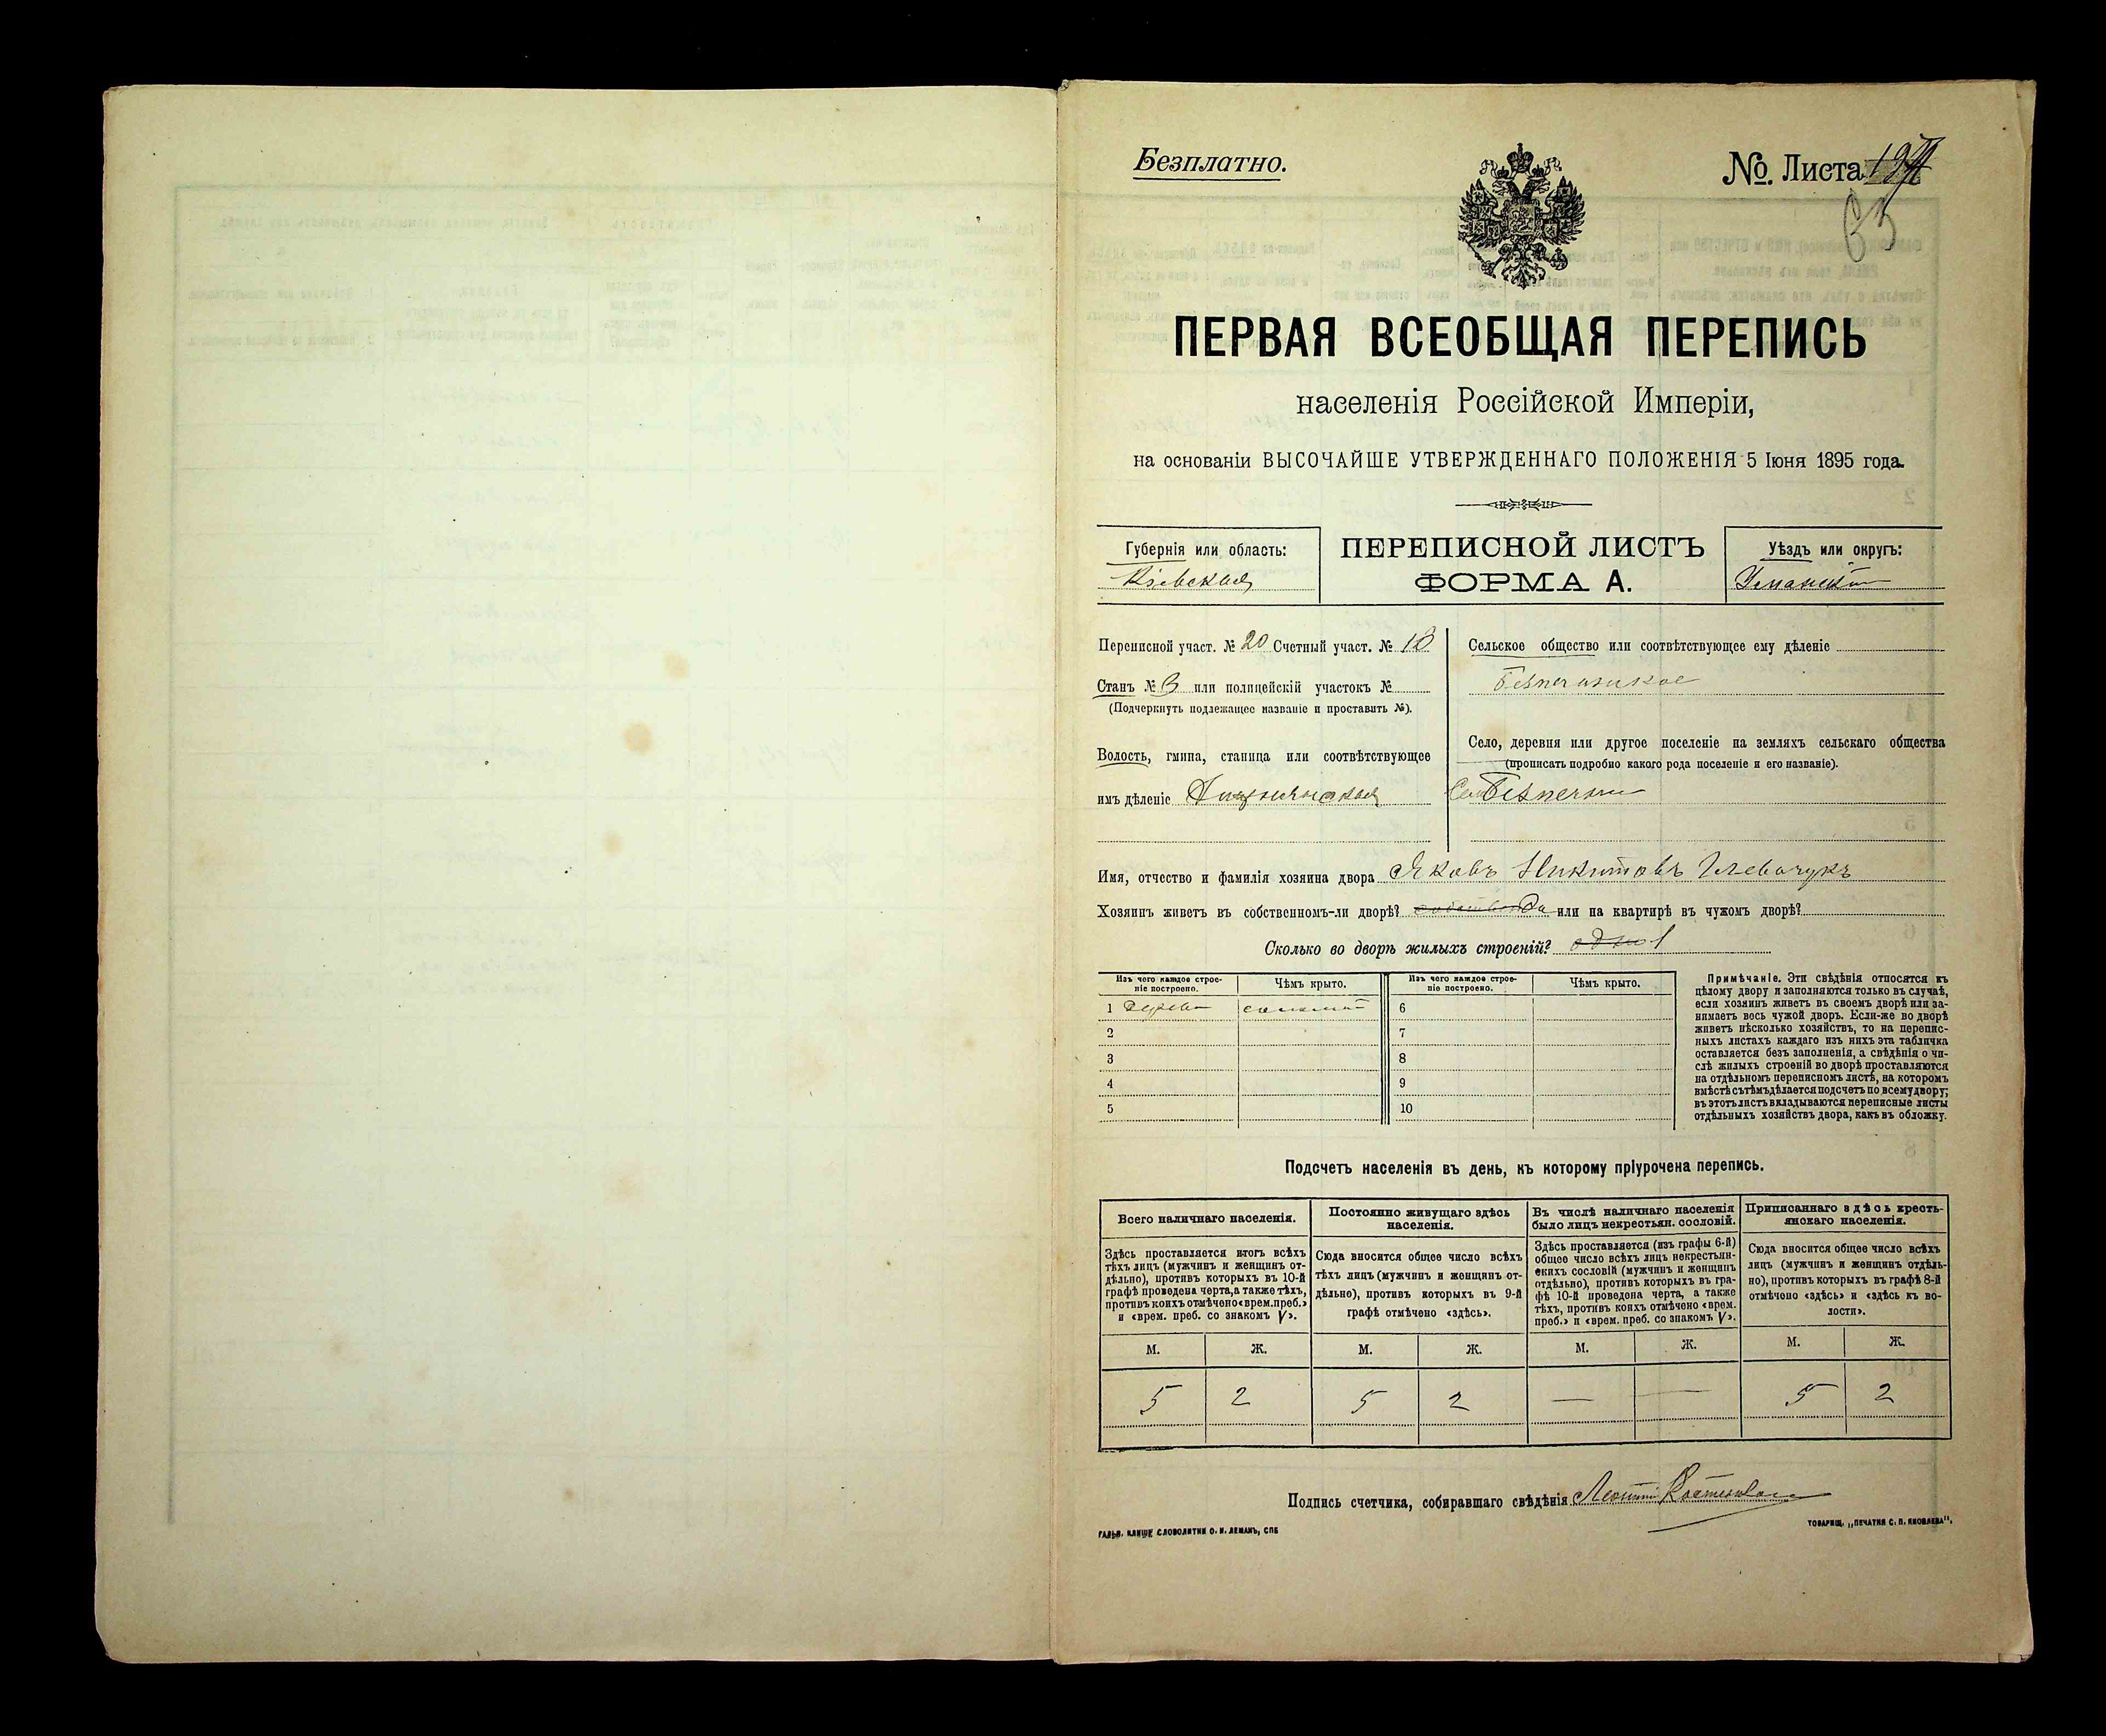 Безплатно.
№. Листа
ПЕРВАЯ ВСЕОБЩАЯ ПЕРЕПИСЬ
населенія Россійской Имперіи,
на основаніи ВЫСОЧАЙШЕ УТВЕРЖДЕННАГО ПОЛОЖЕНІЯ 5 Іюня 1895 года.
Губернія или область:
Кіевская
ПЕРЕПИСНОЙ ЛИСТЪ
ФОРМА А.
Уѣздъ или округъ:
Уманскій
Переписной участ. № 20 Счетный участ. № 18
Станъ № 3 или полицейскій участокъ №
(Подчеркнуть подлежащее названіе и проставить №).
Волость, гмина, станица или соотвѣтствующее
имъ дѣленіе
Сельское общество или соотвѣтствующее ему дѣленіе
Безпечанское
Село, деревня или другое поселеніе на земляхъ сельскаго общества
(прописать подробно какого рода поселеніе и его названіе).
Имя, отчество и фамилія хозяина двора Яковъ Никитовъ
Хозяинъ живетъ въ собственномъ-ли дворѣ? Да или на квартирѣ въ чужомъ дворѣ?
Сколько во дворѣ жилыхъ строеній? одно 1
Изъ чего каждое строе-
ніе построено.
Чѣмъ крыто.
Изъ чего каждое строе-
ніе построено.
Чѣмъ крыто.
1 6
2 7
3 8
4 9
5 10
Примѣчаніе. Эти свѣдѣнія относятся къ
цѣлому двору и заполняются только въ случаѣ,
если хозяинъ живетъ въ своемъ дворѣ или за-
нимаетъ весь чужой дворъ. Если-же во дворѣ
живетъ нѣсколько хозяйствъ, то на перепис-
ныхъ листахъ каждаго изъ нихъ эта табличка
оставляется безъ заполненія, а свѣдѣнія о чи-
слѣ жилыхъ строеній во дворѣ проставляются
на отдѣльномъ переписномъ листѣ, на которомъ
вмѣстѣ съ тѣмъ дѣлается подсчетъ по всему двору;
въ этотъ листъ вкладываются переписные листы
отдѣльныхъ хозяйствъ двора, какъ въ обложку.
Подсчетъ населенія въ день, къ которому пріурочена перепись.
Всего наличнаго населенія.
Здѣсь проставляется итогъ всѣхъ
тѣхъ лицъ (мужчинъ и женщинъ от-
дѣльно), противъ которыхъ въ 10-й
графѣ проведена черта, а также тѣхъ,
противъ коихъ отмѣчено «врем. преб.»
и «врем. преб. со знакомъ V».
Постоянно живущаго здѣсь
населенія.
Сюда вносится общее число всѣхъ
тѣхъ лицъ (мужчинъ и женщинъ от-
дѣльно), противъ которыхъ въ 9-й
графѣ отмѣчено «здѣсь».
Въ числѣ наличнаго населенія
было лицъ некрестьян. сословій.
Здѣсь проставляется (изъ графы 6-й)
общее число всѣхъ лицъ некрестьян-
скихъ сословій (мужчинъ и женщинъ
отдѣльно), противъ которыхъ въ гра-
фѣ 10-й проведена черта, а также
тѣхъ, противъ коихъ отмѣчено «врем.
преб.» и «врем. преб. со знакомъ V».
Приписаннаго здѣсь кресть-
янскаго населенія.
Сюда вносится общее число всѣхъ
лицъ (мужчинъ и женщинъ отдѣль-
но), противъ которыхъ въ графѣ 8-й
отмѣчено «здѣсь» и «здѣсь къ во-
лости».
М. Ж. М. Ж. М. Ж. М. Ж.
5 2 5 2 — — 5 2
Подпись счетчика, собиравшаго свѣдѣнія
ГАЛЬВ. КЛИШЕ СЛОВОЛИТНИ О. И. ЛЕМАНЪ, СПБ
ТОВАРИЩ. „ПЕЧАТНЯ С. П. ЯКОВЛЕВА".